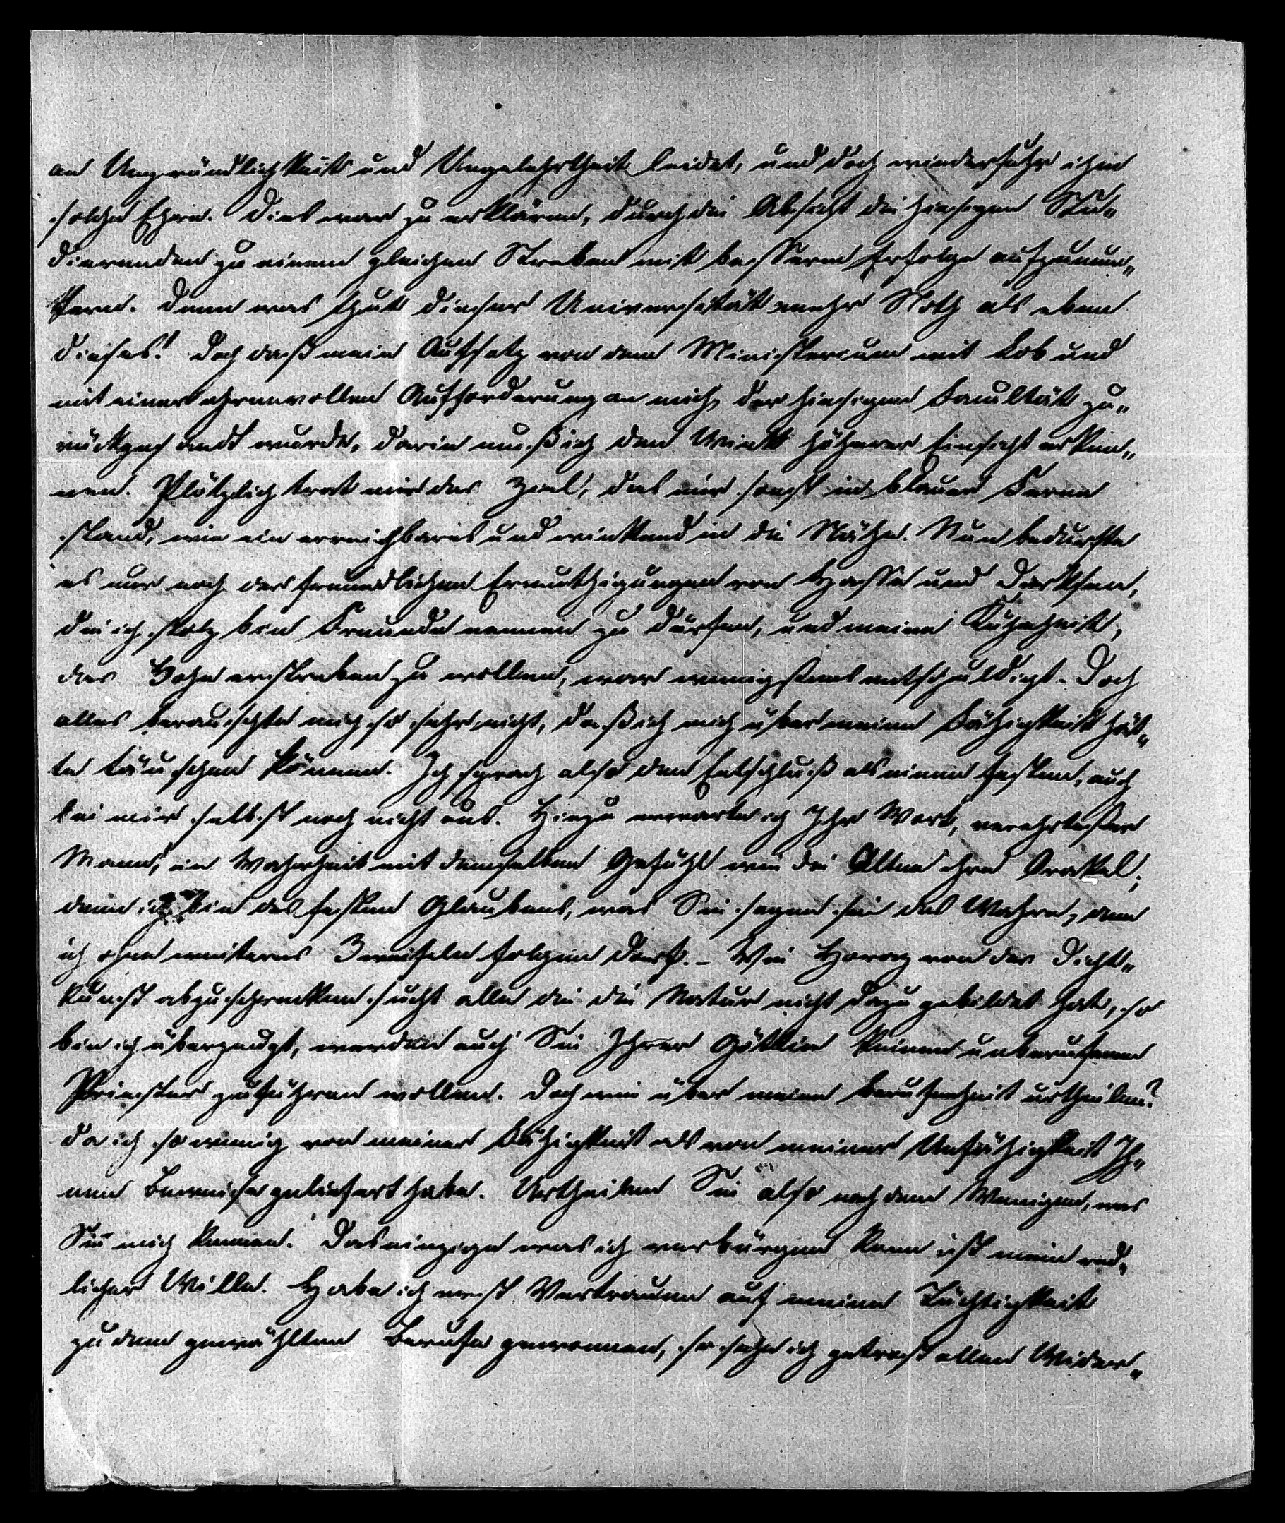 an Ungründlichkeit und Ungelehrtheit leidet, und doch wiederfuhr ihm
solche Ehre. Dies war zu erklären, durch die Absicht die hiesigen Stu-
dierenden zu einem gleichen Streben mit besserem Erfolge aufzumun-
tern. Denn was thut dieser Universität mehr Noth als eben
dieses! Doch daß mein Aufsatz von dem Ministerium mit Lob und
mit einer ehrenvollen Aufforderung an mich, der hiesigen Facultät zu-
rückgesandt wurde, darin muß ich den Wink höherer Einsicht erken-
nen. Plötzlich trat mir das Ziel, das mir sonst in blauer Ferne
stand, wie ein erreichbares und winkend in die Nähe. Nun bedurfte
es nur noch der freundlichen Ermuthigungen von Hasse und Dirksen,
die ich stolz bin Freunde nennen zu dürfen, und meine Kühnheit,
das Hohe erstreben zu wollen, war wenigstens entschuldigt. Doch
alles berauschte mich so sehr nicht, daß ich mich über meine Fähigkeit hät-
te täuschen können. Ich sprach also den Entschluß als einen festen, auch
bei mir selbst noch nicht aus. Hiezu erwarte ich Ihr Wort, verehrtester
Mann, in Wahrheit mit demselben Gefühl wie die Alten ihre Orakel;
denn ich bin des festen Glaubens, was Sie sagen sei das Wahre, dem
ich ohne weiteres Zweifeln folgen darf. – Wie Horaz von der Dicht-
kunst abzuschrecken sucht alle die die Natur nicht dazu gebildet hat, so
bin ich überzeugt, werden auch Sie Ihrer Göttin keinen unberufenen
Priester zuführen wollen. Doch wie über meine Berufenheit urtheilen?
da ich so wenig von meiner Fähigkeit als von meiner Unfähigkeit Ih-
nen Beweise geliefert habe. Urtheilen Sie also nach dem Wenigen, was
Sie mich kennen. Das einzige was ich verbürgen kann ist mein red-
licher Wille. Habe ich erst Vertrauen auf meine Tüchtigkeit
zu dem gewählten Berufe gewonnen, so sehe ich getrost allen Wider-